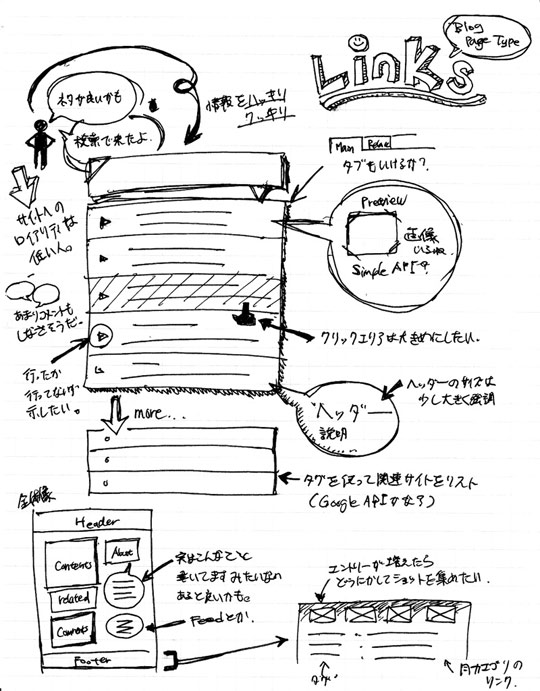 Blog
Page Type
Links
ネタが良いかも
検索で来たよ。
情報をハッキリ
クッキリ
Main
タブもいけるか?
サイトへの
ロイアリティは
低い人。
Preview
画像
いるね。
Simple APIで
あまりコメントも
しなさそうだー
クリックエリアは大きめにしたい。
行ったか
行ってないか
示したい。
ヘッダー
説明
ヘッダーのサイズは
少し大きく強調
more...
タグを使って関連サイトをリスト
(Google APIかな?)
全体像
Header
Contents
About
related
Footer
実はこんなこと
書いてます みたいなの
あると良いかも。
Feedとか。
エントリーが増えたら
どうにかしてショットを集めたい。
タグ
カテゴリの
リンク.